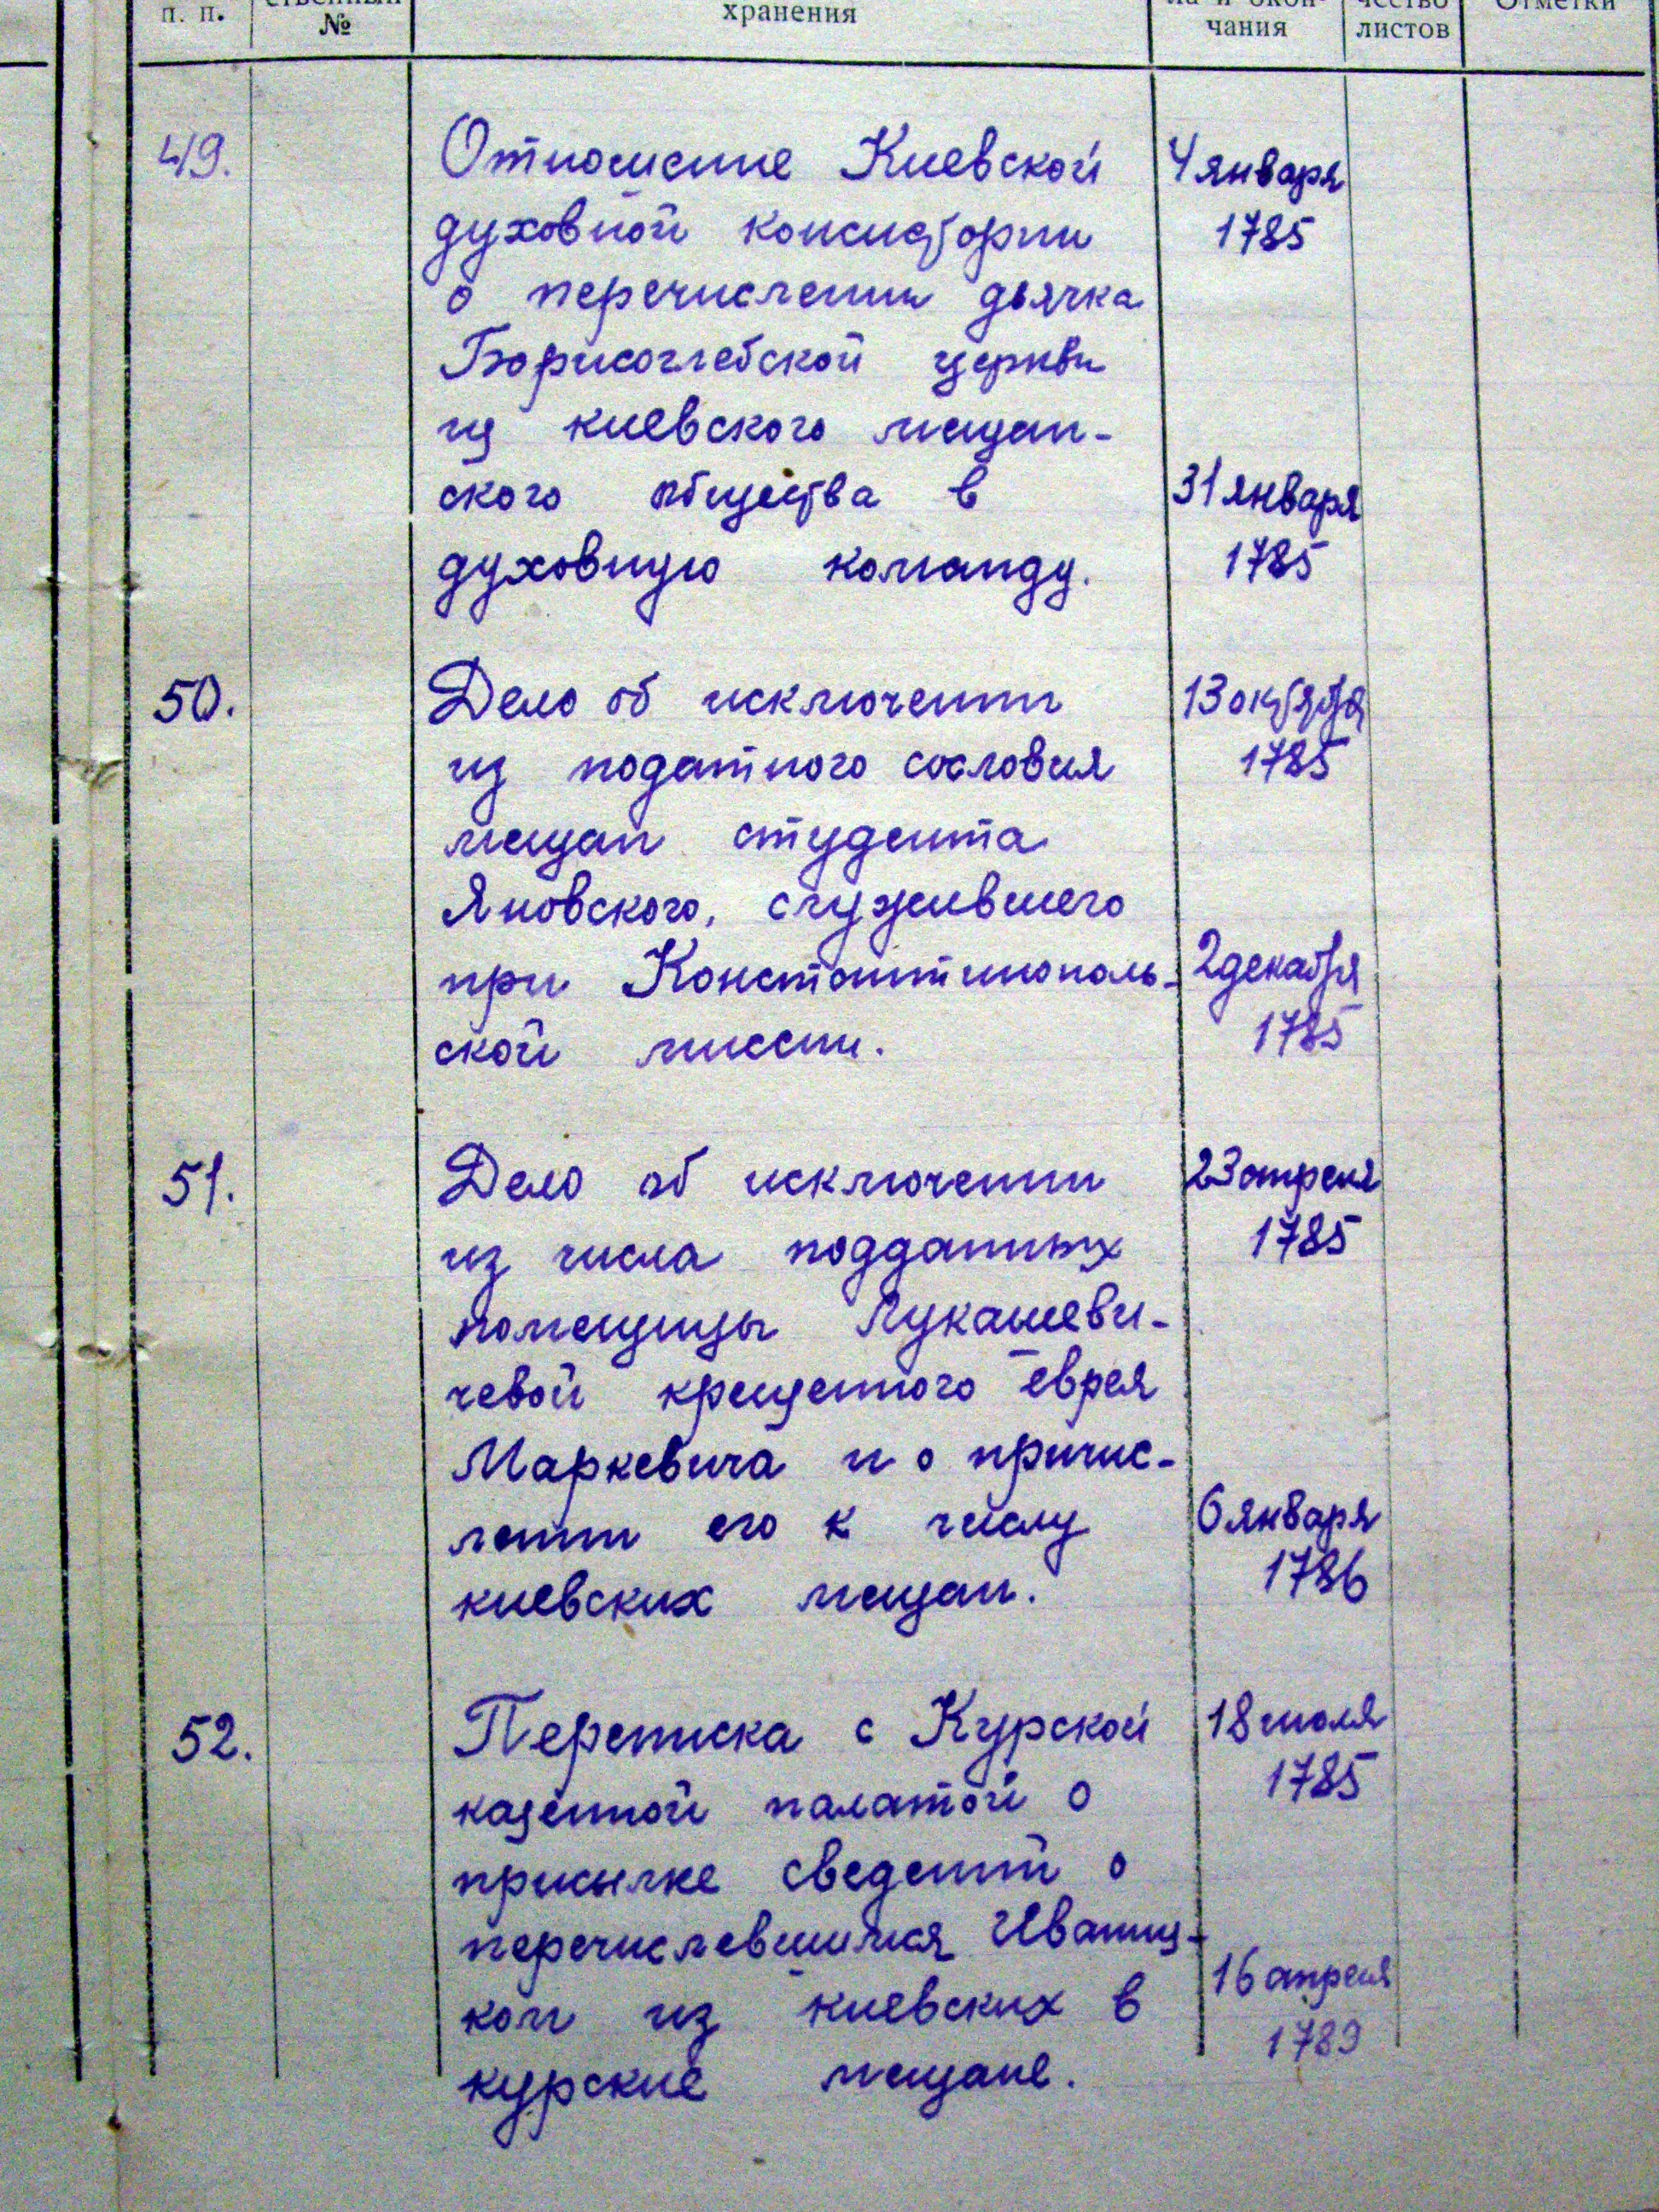 п. п.
ственный
№
хранения
ла и окон-
чания
чество
листов
Отметки
49.
Отношение Киевской
духовной консистории
о перечислении дьячка
Борисоглебской церкви
из киевского мещан-
ского общества в
духовную команду.
4 января
1785
31 января
1785
50.
Дело об исключении
из податного сословия
мещан студента
Яновского, служившего
при Константинополь-
ской миссии.
13 октября
1785
2 декабря
1785
51.
Дело об исключении
из числа подданных
помещицы Лукашеви-
чевой крещенного еврея
Маркевича и о причис-
лении его к числу
киевских мещан.
23 апреля
1785
6 января
1786
52.
Переписка с Курской
казенной палатой о
присылке сведений о
перечислевшимся Иваниц-
ком из киевских в
курские мещане.
18 июля
1785
16 апреля
1789